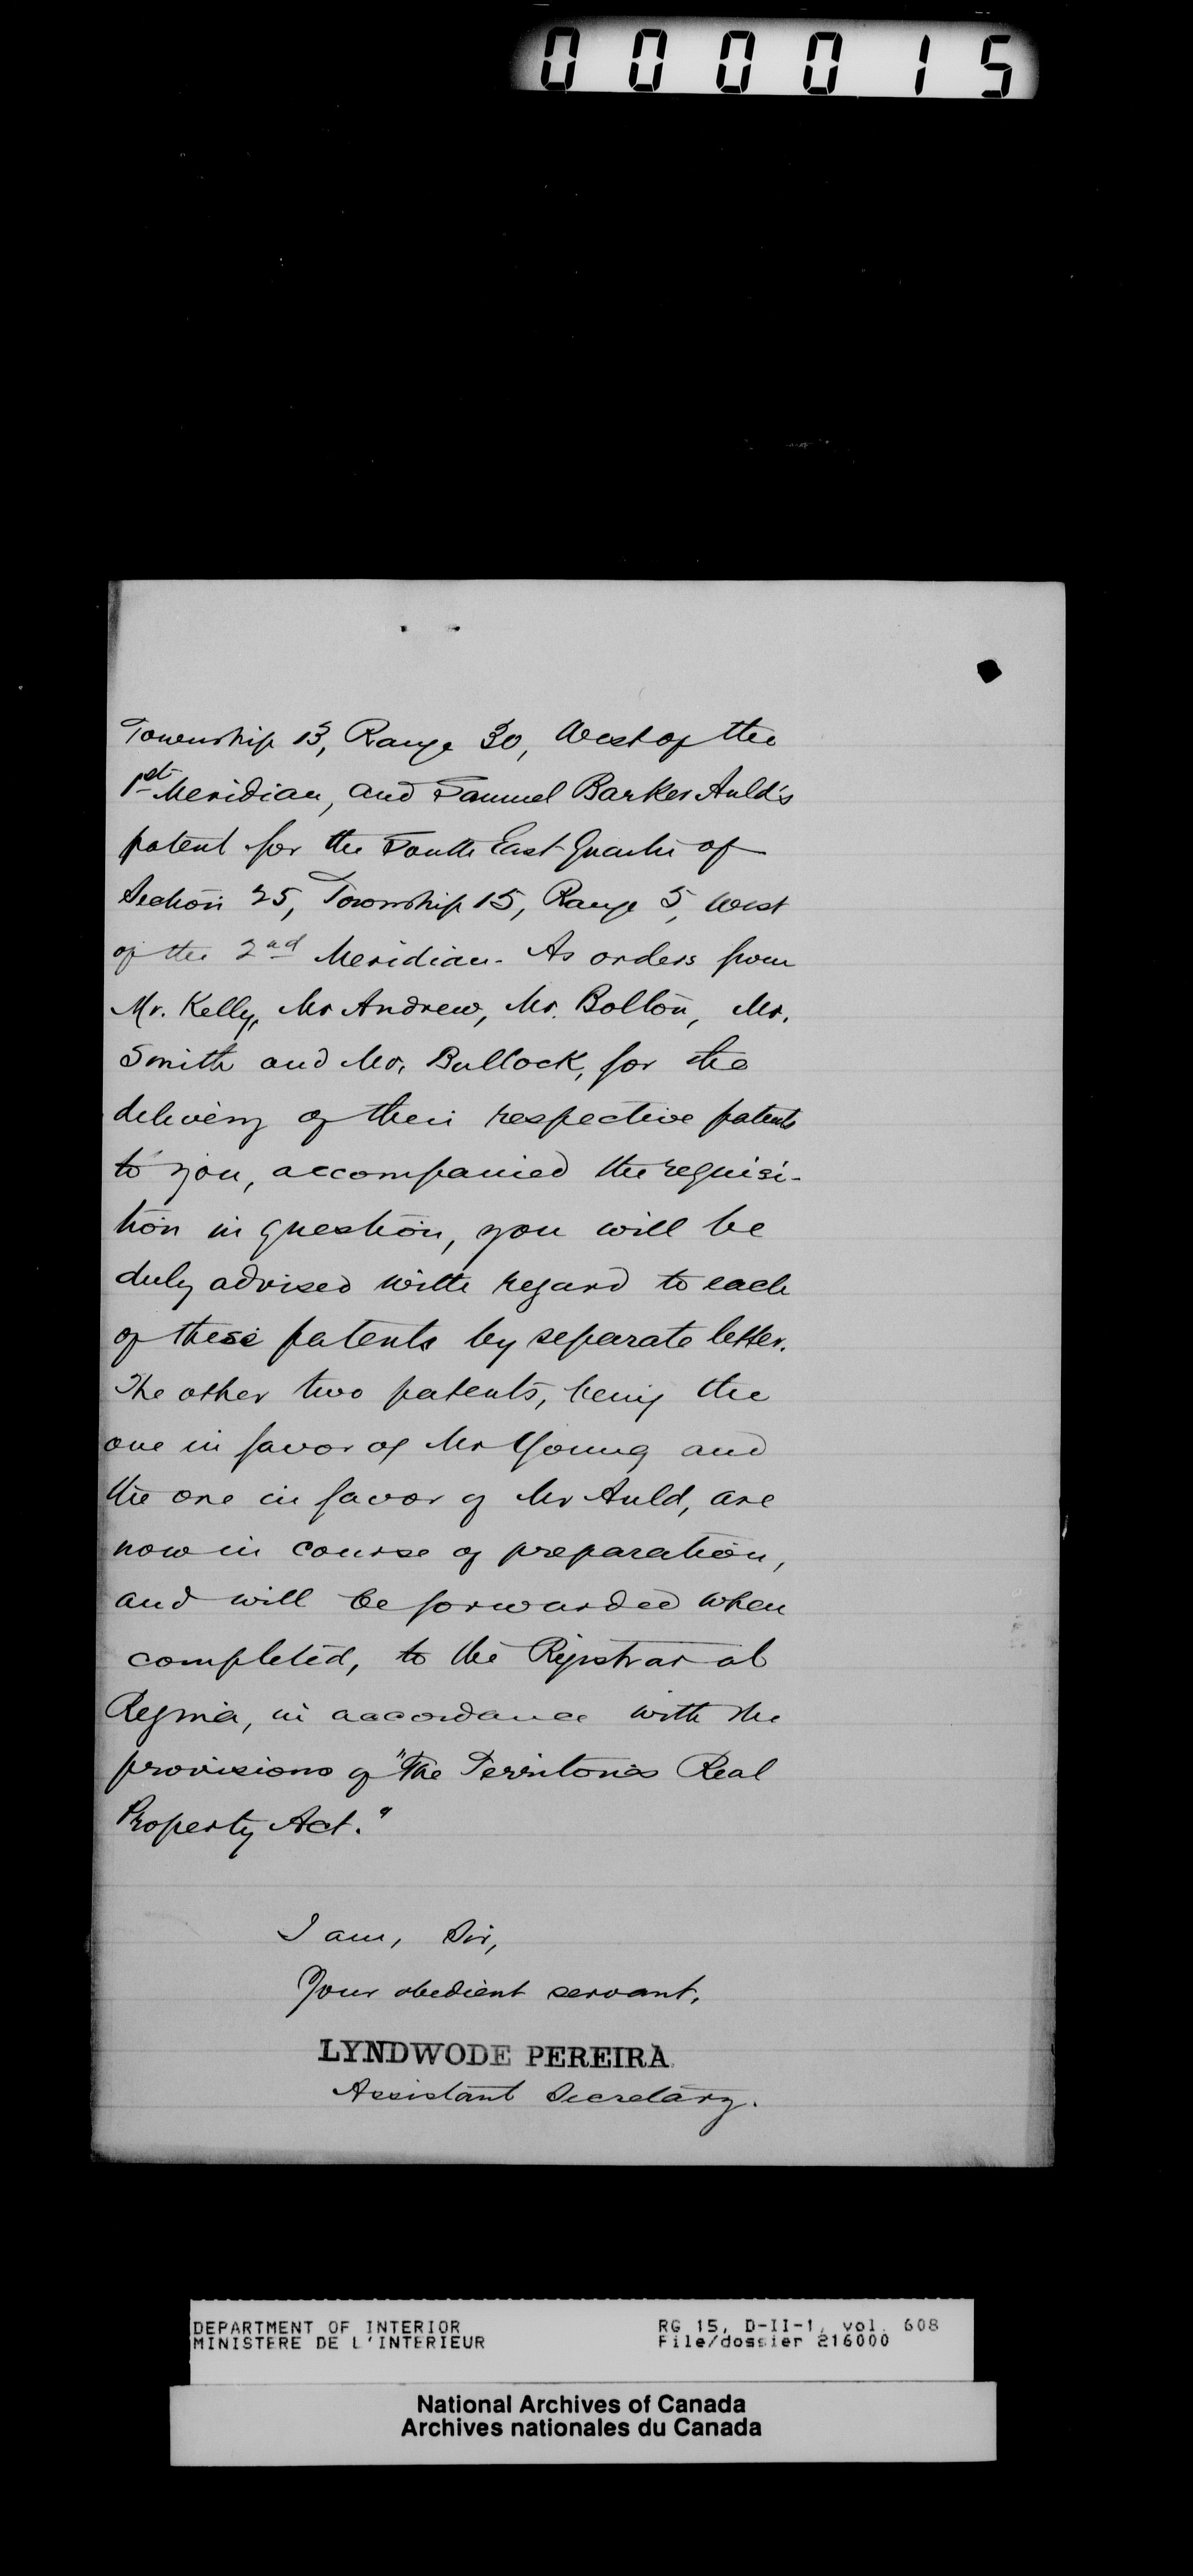 000015
Township 13, Range 30, West of the
1st Meridian, and Samuel Barker Auld's
patent for the South East Quarter of
Section 25, Township 15, Range 5, West
of the 2nd Meridian. As orders from
Mr. Kelly, Mr Andrew, Mr. Bolton, Mr.
Smith and Mr. Bullock, for the
delivery of their respective patents
to you, accompanied the requisi-
tion in question, you will be
duly advised with regard to each
of these patents by separate letter.
The other two patents, being the
one in favor of Mr Young and
the one in favor of Mr Auld, are
now in course of preparation,
and will be forwarded when
completed, to the Registrar at
Regina, in accordance with the
provisions of "The Territories Real
Property Act."
I am, Sir,
Your obedient servant,
LYNDWODE PEREIRA
Assistant Secretary.
DEPARTMENT OF INTERIOR RG 15, D-II-1, vol. 608
MINISTERE DE L'INTERIEUR File/dossier 216000
National Archives of Canada
Archives nationales du Canada